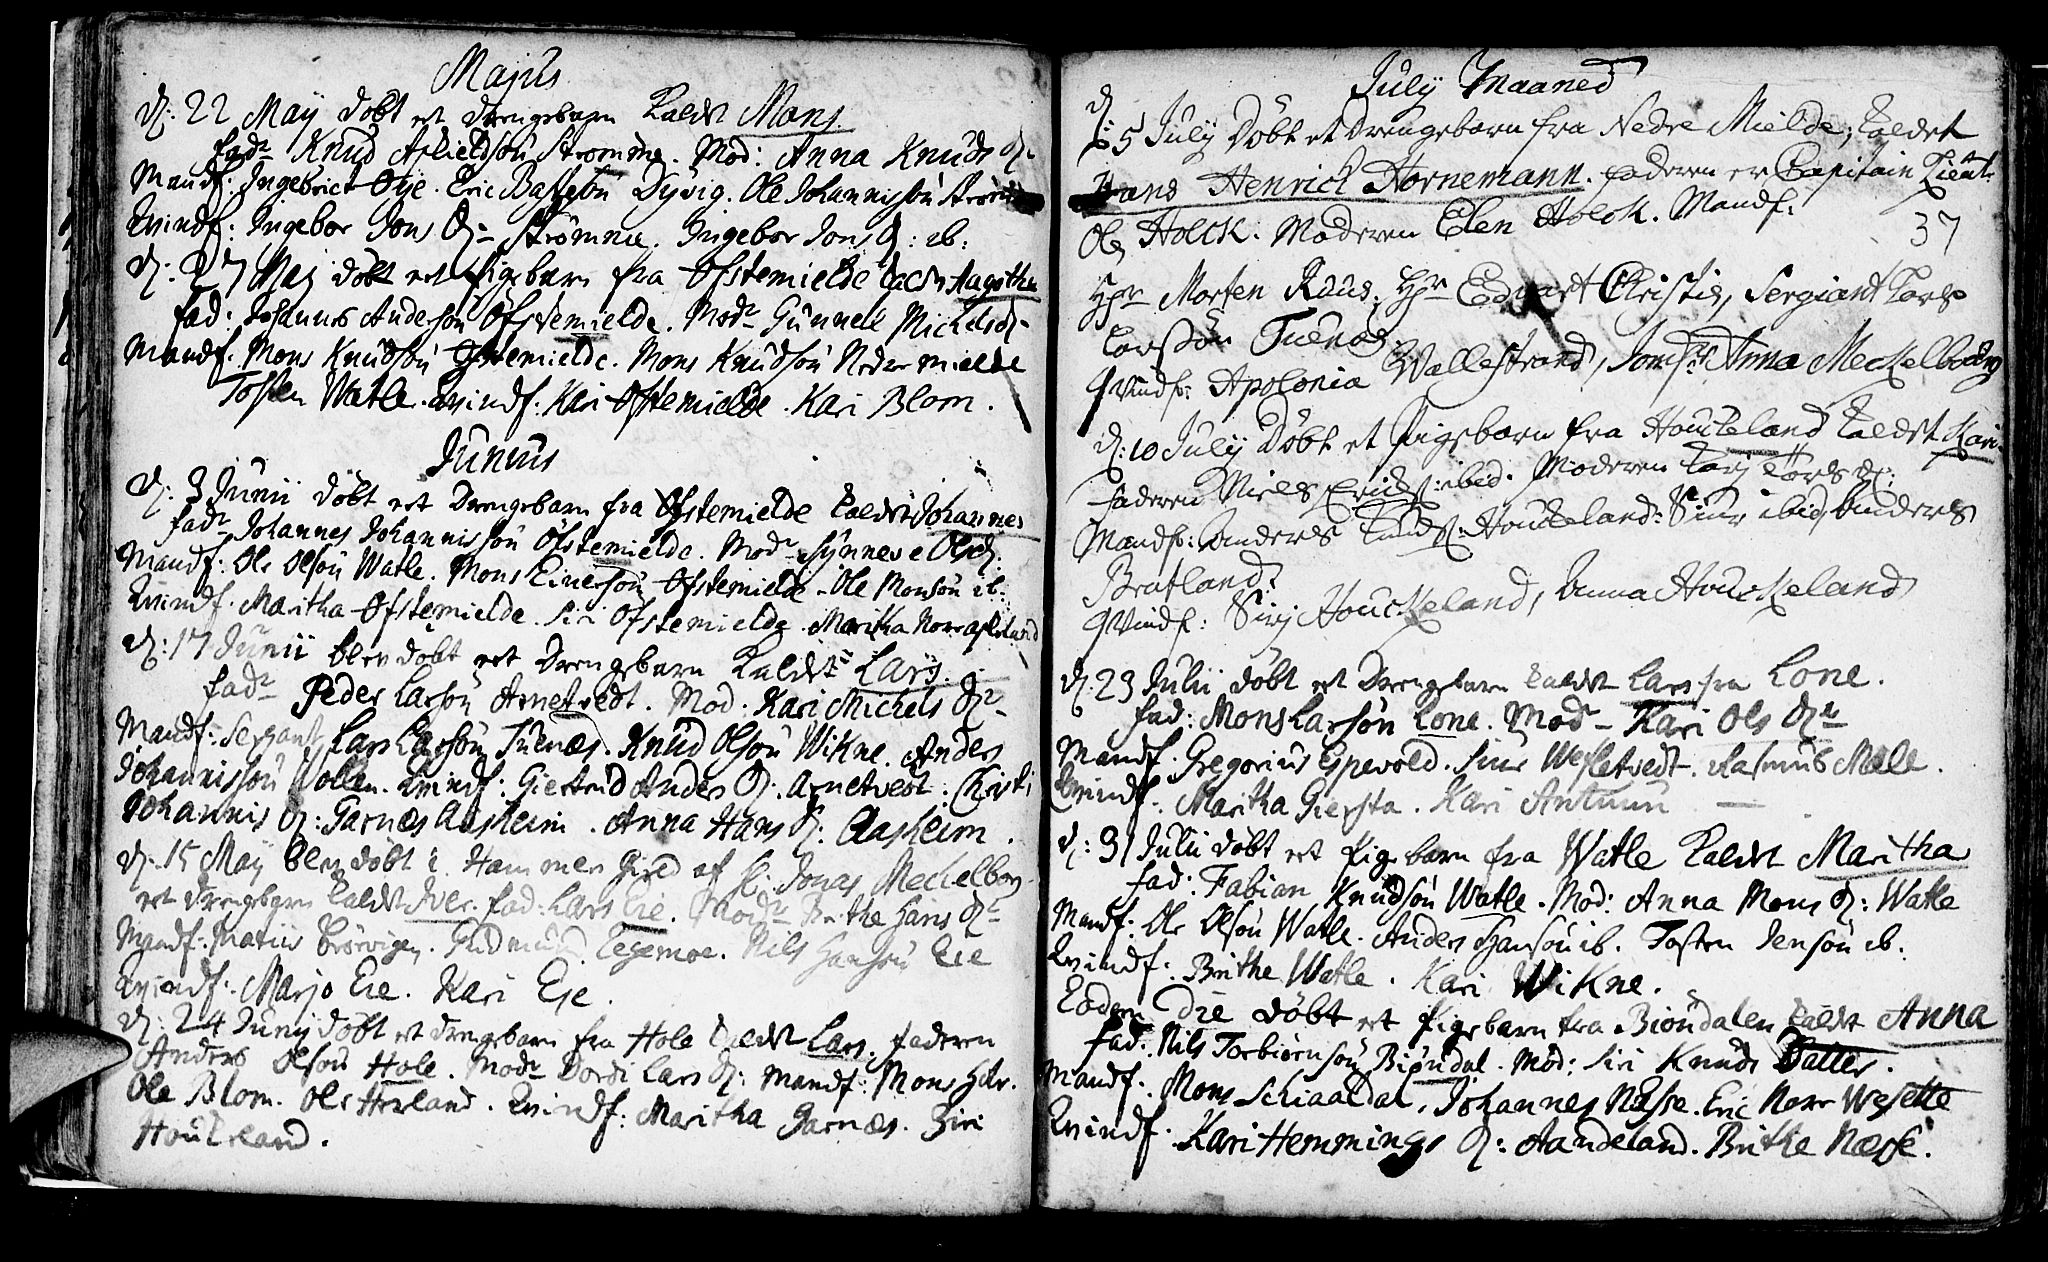 Majus
d: 22 May döbt et drengebarn kaldt Mons.
fadr Knud Askieldsön Strömme. Mod: Anna Knuds D:
Mandf. Ingebrict Øye. Eric Dyvig. Ole Johannissön
Kvindf: Ingebor Jons D: Strömme. Ingebor Jons D: ib:
d: 27 May döbt et pigebarn fra Ofstemielde kaldt Aagotha
fad: Johannes Andersön Öfstemielde. Modr Gunnele Michelsd:
Mandf. Mons Knudsön Ofstemielde. Mons Knudsön Nedremielde
Tosten Watle. Kvindf: Kari Ofstemielde. Kari Blom.
Junius
d: 3 Junii döbt et drengebarn fra Ofstemielde kaldt Johannes
fadr Johannes Johannissön Öfstemielde. Modr Synneve Olsd:
Mandf: Ole Olsön Watle. Mons Einersön Ofstemielde. Ole Monsön ib:
Kvindf. Maritha Ofstemielde. Siri Ofstemielde. Maritha
d: 17 Junii blev döbt et drengebarn kaldt Lars.
fadr Peder Larsön Arnetvedt. Mod: Kari Michels Dr
Mandf: Sergant Lars Larsön Tuenæs. Knud Olsön Wikne. Anders
Johannissön Vollen. Kvindf: Giertrud Anders D: Arnetvedt: Christi
Johannis D: Garnæs Aasheim. Anna Hans D: Aasheim.
d: 15 May blev döbt i Hammer Gired af Hr: Jonas Meckelborg
et drengebarn kaldt Iver. fad: Lars Eie. Modr Brithe Hans Dr
Mandf: Matiis Brörvigen. Gudmund Tegemoe. Nils Hansön Eie
Kvindf: Marjo Eie. Kari Eie.
d: 24 Junij döbt et drengebarn fra Hole kaldt Lars. faderen
Anders Olsön Hole. Modr Dordi Lars D: Mandf: Mons
Ole Blom. Ole Herland. Kvindf: Maritha Garnæs. Siri
Houkeland.
July Maaned
d: 5 July Döbt et Drengebarn fra Nedre Mielde, kaldet
Hans Henrich Hornemann. faderen er Capitain Lieut:
Ole Holck. Moderen Elen Holck. Mandf:
37
Hr Morten Raus, Hr Edvart Christie, Sergiant Lars
Larsön Tuenæs.
Qvindf: Apolonia Vallestrand, Jomfr: Anna Meckelborg
d: 10 July Döbt et Pigebarn fra Houkeland kaldet Kari.
faderen Niels Erichs: ibid. Moderen Karj Lars d:
Mandf: Anders Knuds: Houkeland: Siur ibid, Anders
Bratland:
Qvindf: Sirj Houckeland, Anna Houckeland
d: 23 Julii döbt et Drengebarn kaldt Lars fra Lone.
fad: Mons Larsön Lone. Modr Kari Ols Dr
Mandf. Gregorius Espevold. Siur Wesletvedt. Rasmus Mæle.
Kvindf: Maritha Giersta. Kari Antuun —
d: 31 Julii döbt et pigebarn fra Watle kaldt Maritha
fad: Fabian Knudsön Watle. Mod: Anna Mons D: Watle
Mandf: Ole Olsön Watle. Anders Hansön ib. Tosten Jensön ib.
Kvindf: Brithe Watle. Kari Wikne.
Eodem Die döbt et pigebarn fra Biöndalen kaldt Anna
fad: Nils Torbiörnsön Biöndal. Mod: Siri Knuds Datter.
Mandf: Mons Schiaaldal, Johannes Næsse. Eric Norr Wesette
Kvindf. Kari Hemmings D: Aandeland. Brithe Næsse.